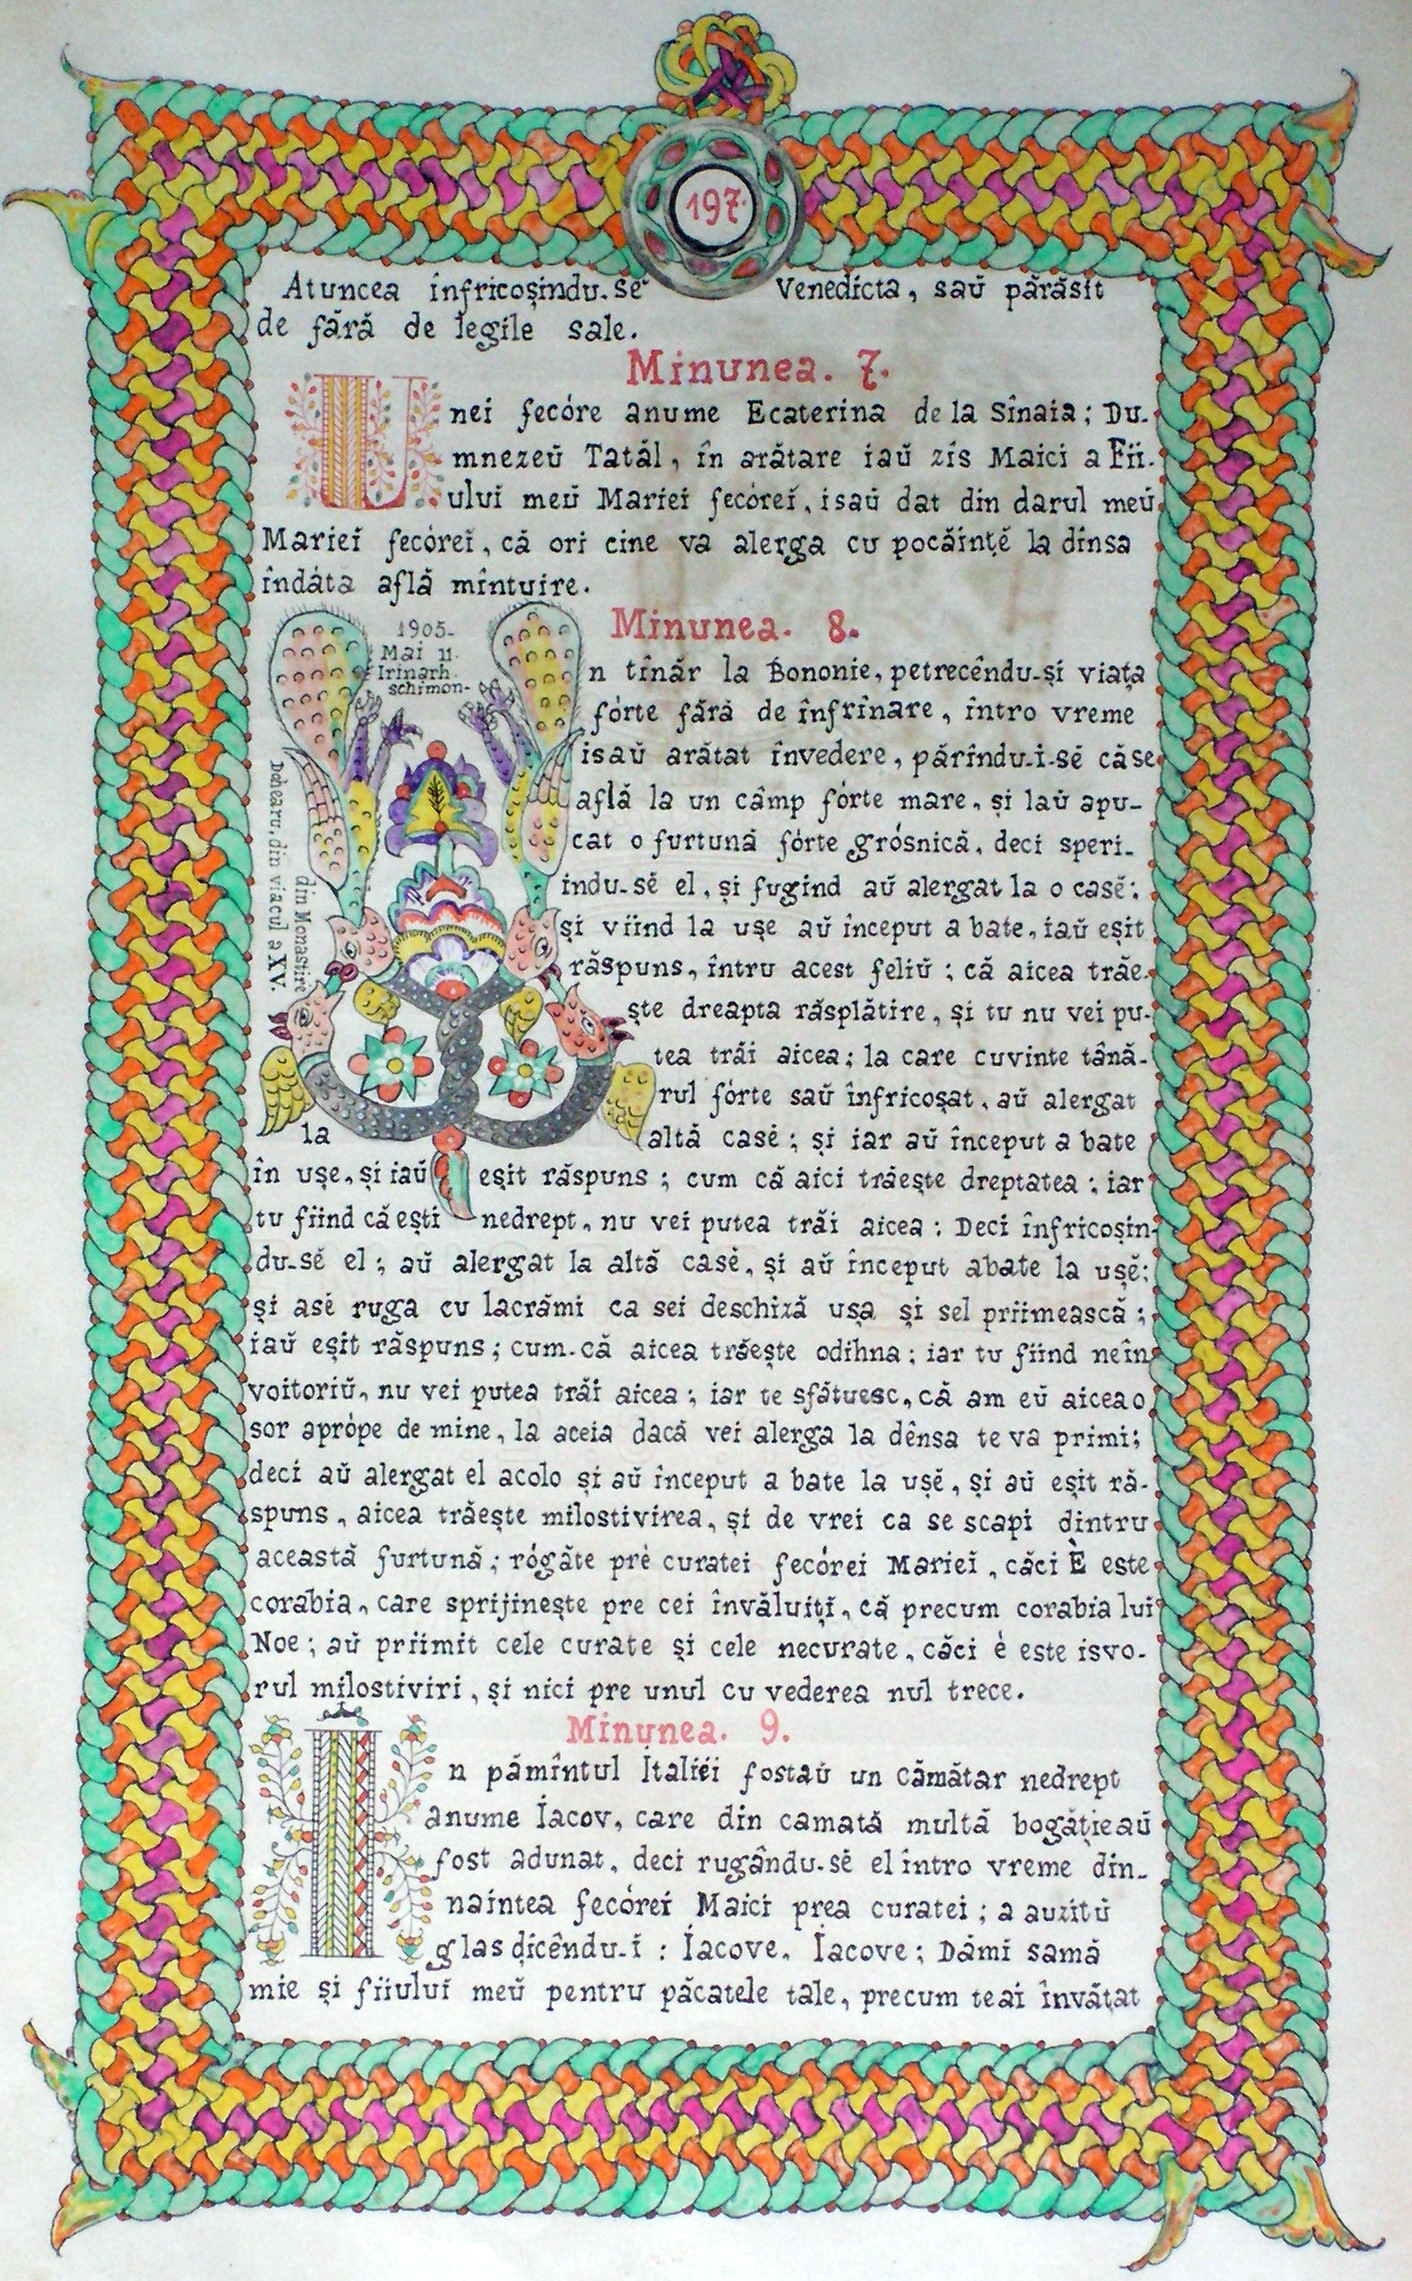 197.
Atuncea înfricoșindu-se Venedicta, saŭ părăsit
de fără de legile sale.
Minunea. 7.
Unei fecóre anume Ecaterina de la Sînaia; Du-
mnezeŭ Tatăl, în arătare iaŭ zîs Maici a Fii-
ului meŭ Mariei fecóreĭ, isaŭ dat din darul meŭ
Marieĭ fecóreĭ, că ori cine va alerga cu pocăință la dînsa
îndată află mîntuire.
1905-
Mai 11.
Irinarh
schimon-
Dohearu, din viacul a XV.
din Monastire
Minunea. 8.
n tînăr la Bononie, petrecêndu-și viața
fórte fără de înfrînare, întro vreme
isaŭ arătat învedere, părîndu-i-sĕ căse
află la un câmp fórte mare, și laŭ apu-
cat o furtună fórte grósnică, deci speri-
indu-sĕ el, și fugind aŭ alergat la o casĕ;
și viind la ușe aŭ început a bate, iaŭ eșit
răspuns, întru acest feliŭ; că aicea trăe-
ște dreapta răsplătire, și tu nu vei pu-
tea trăi aicea; la care cuvinte tână-
rul fórte saŭ înfricoșat, aŭ alergat
la altă casĕ; și iar aŭ început a bate
în ușe, și iaŭ eșit răspuns; cum că aici trăește dreptatea; iar
tu fiind că ești nedrept, nu vei putea trăi aicea: Deci înfricoșin-
du-sĕ el; aŭ alergat la altă casĕ, și aŭ început abate la ușĕ;
și asĕ ruga cu lacrămi ca sei deschiză ușa și sel priimească;
iaŭ eșit răspuns; cum-că aicea trăește odihna; iar tu fiind neîn
voitoriŭ, nu vei putea trăi aicea; iar te sfătuesc, că am eŭ aicea o
sor aprópe de mine, la aceia dacă vei alerga la dênsa te va primi;
deci aŭ alergat el acolo și aŭ început a bate la ușĕ, și aŭ eșit ră-
spuns, aicea trăește milostivirea, și de vrei ca se scapi dintru
această furtună; rógăte prĕ curatei fecórei Marieĭ, căci È este
corabia, care sprijinește pre cei învăluițĭ, că precum corabia lui
Noe; aŭ priimit cele curate și cele necurate, căci è este isvo-
rul milostiviri, și nici pre unul cu vederea nul trece.
Minunea. 9.
În pămîntul Italiéi fostaŭ un cămătar nedrept
anume Íacov, care din camată multă bogățieaŭ
fost adunat, deci rugându-sĕ el întro vreme din-
naintea fecóreĭ Maici prea curatei; a auzitŭ
glas dicêndu-i: Íacove, Íacove; Dámi samă
mie și fiiuluĭ meŭ pentru păcatele tale, precum teai învățat